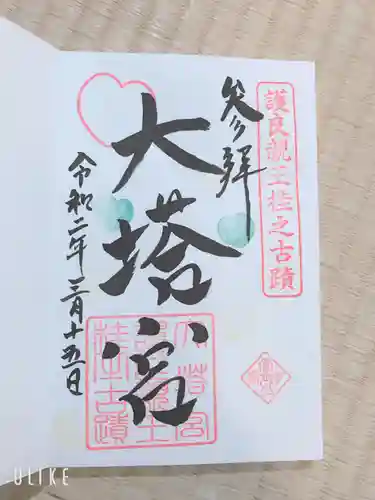 護良親王桂之古蹟
参拝
大塔宮
令和二年三月十五日
大塔宮
護良親王
桂之古蹟
ULIKE